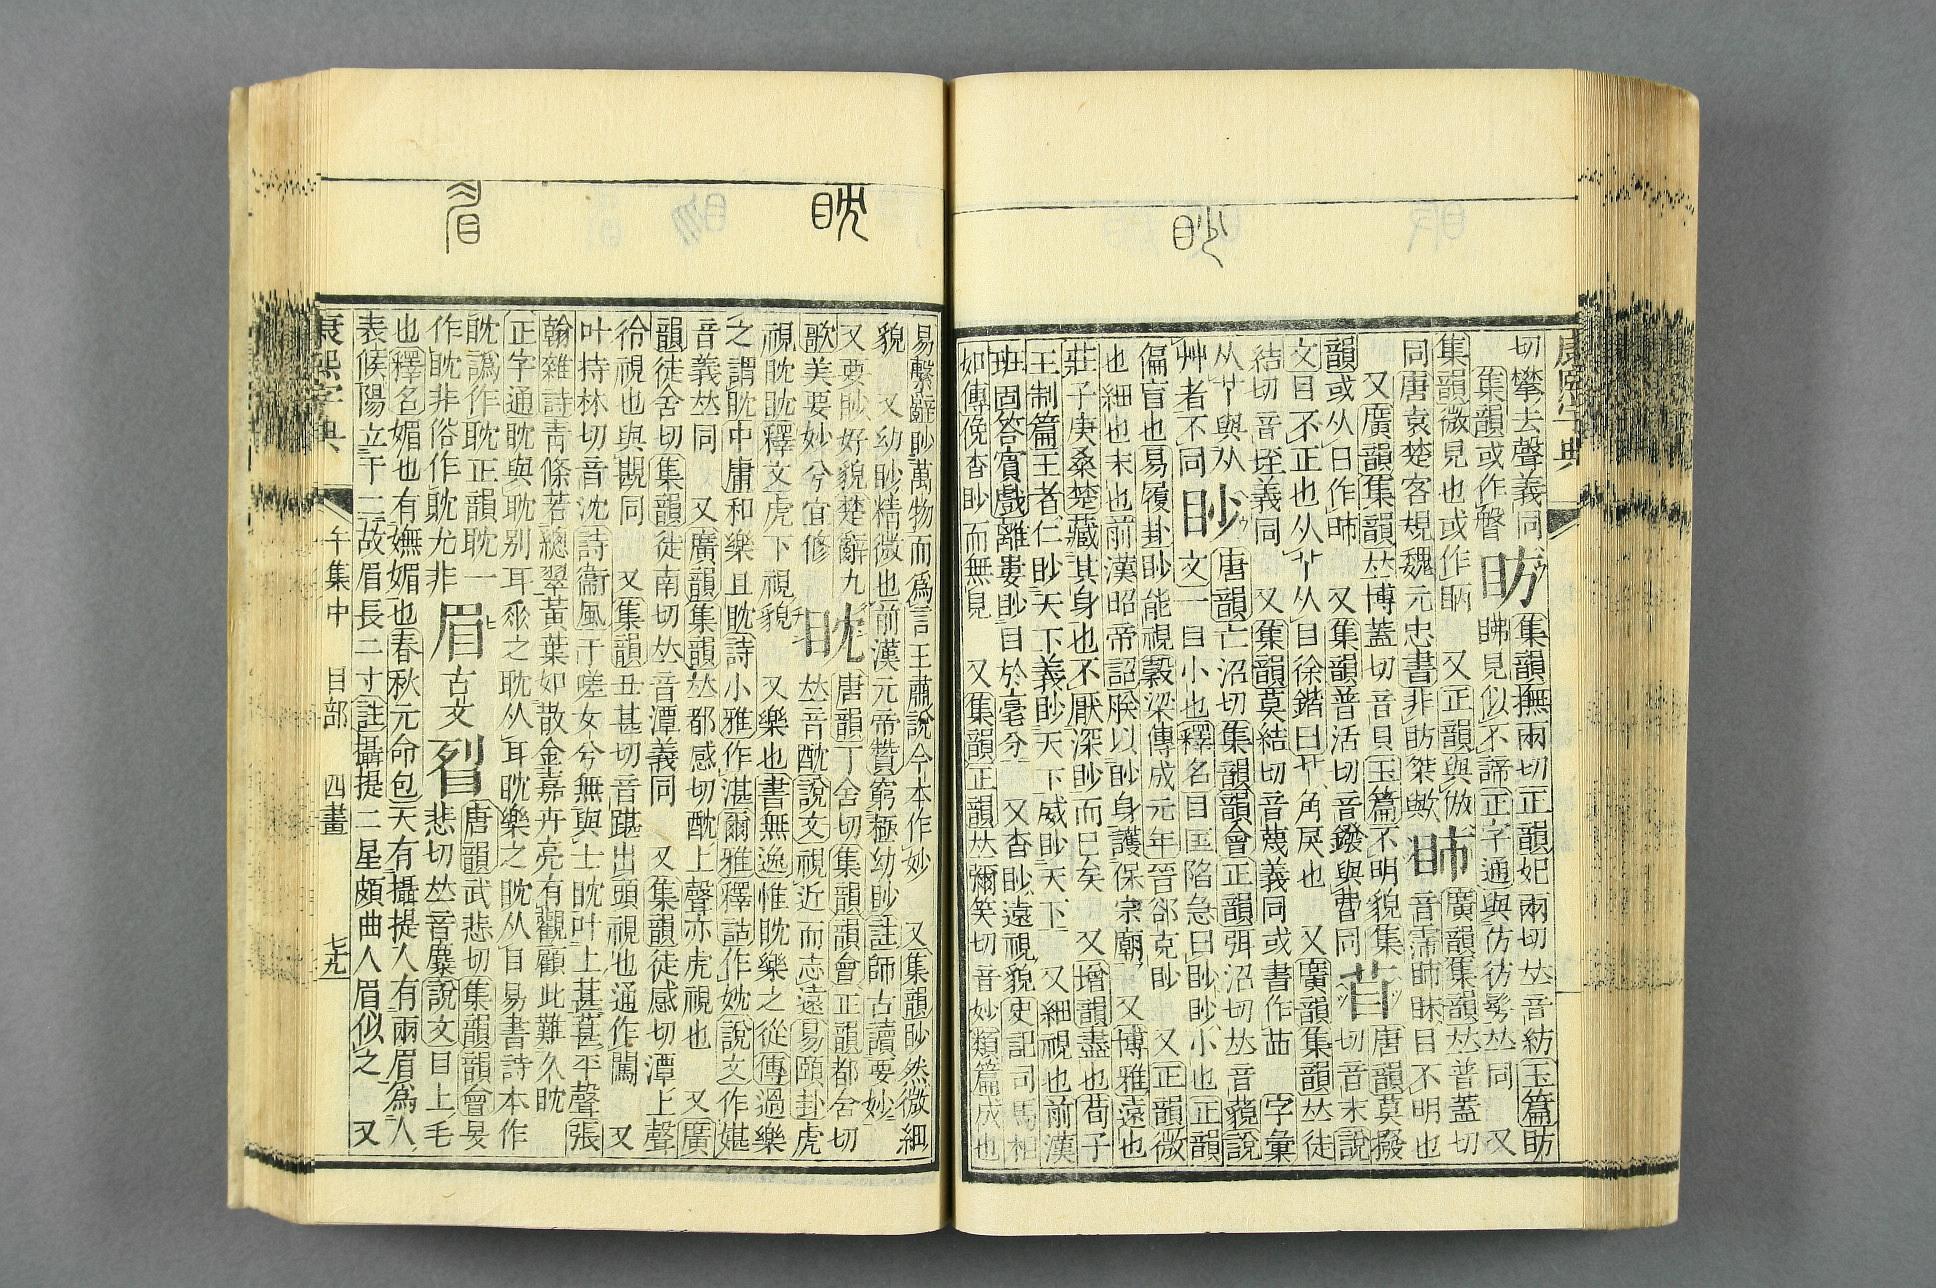 眇
切攀去聲義同 昉 集韻撫兩切正韻妃兩切𠀤音紡玉篇昉
集韻或作瞥 昲見似不諦正字通與仿彷髣𠀤同 又
集韻微見也或作眪 又正韻與倣 䀯 廣韻集韻𠀤普蓋切
同唐袁楚客規魏元忠書非昉桀歟 音霈䀯眛目不明也
又廣韻集韻𠀤博蓋切音貝玉篇不明貌集 𥄕 唐韻莫撥
韻或从日作昁 又集韻普活切音鏺與𥄱同 切音末說
文目不正也从𦫳从目徐鍇曰𦫳角戾也 又廣韻集韻𠀤徒
結切音垤義同 又集韻莫結切音蔑義同或書作䀛 字彙
从𦫳與从 眇 唐韻亡沼切集韻韻會正韻弭沼切𠀤音藐說
艸者不同 文一目小也釋名目匡陷急曰眇眇小也正韻
偏盲也易履卦眇能視穀梁傳成元年晉郤克眇 又正韻微
也細也末也前漢昭帝詔朕以眇身護保宗廟 又博雅遠也
莊子庚桑楚藏其身也不厭深眇而已矣 又增韻盡也荀子
王制篇王者仁眇天下義眇天下威眇天下 又細視也前漢
班固答賓戲離婁眇目於毫分 又杳眇遠視貌史記司馬相
如傳俛杳眇而無見 又集韻正韻𠀤彌笑切音妙類篇成也
眈
眉
易繫辭眇萬物而爲言王肅說今本作妙 又集韻眇然微細
貌 又幼眇精微也前漢元帝贊窮極幼眇註師古讀要妙
又要眇好貌楚辭九 眈 唐韻丁含切集韻韻會正韻都含切
歌美要妙兮宜修 𠀤音酖說文視近而志遠易頤卦虎
視眈眈釋文虎下視貌 又樂也書無逸惟眈樂之從傳過樂
之謂眈中庸和樂且眈詩小雅作湛爾雅釋詁作妉說文作媅
音義𠀤同 又廣韻集韻𠀤都感切酖上聲亦虎視也 又廣
韻徒含切集韻徒南切𠀤音潭義同 又集韻徒感切潭上聲
徐視也與䚂同 又集韻丑甚切音踸出頭視也通作闖 又
叶持林切音沈詩衞風于嗟女兮無與士眈叶上葚葚平聲張
翰雜詩靑條若總翠黃葉如散金嘉卉亮有觀顧此難久眈
正字通眈與耽别耳𠂹之耽从耳眈樂之眈从目易書詩本作
眈譌作耽正韻眈一 眉 古文 𥄗 唐韻武悲切集韻韻會旻
作眈非俗作躭尤非 悲切𠀤音麋說文目上毛
也釋名媚也有嫵媚也春秋元命包天有攝提人有兩眉爲人
表候陽立于二故眉長二寸註攝提二星頗曲人眉似之 又
康熙字典 午集中 目部 四畫 七九